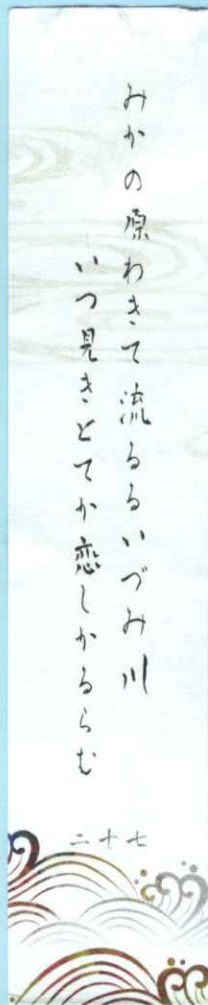 みかの原わきて流るるいづみ川
いつ見きとてか恋しかるらむ
二十七